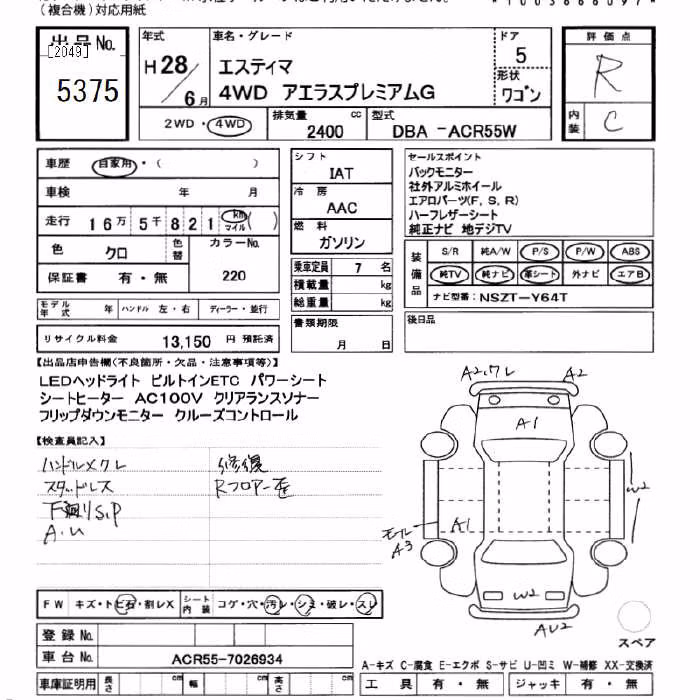 (複合機)対応用紙
*1003866097*
出品No.
[2049]
5375
年式
H28/6月
車名・グレード
エスティマ
4WD アエラスプレミアムG
ドア
5
形状
ワゴン
評価点
R
内装
C
2WD・4WD
排気量
2400 cc
型式
DBA -ACR55W
車歴
自家用・( )
車検 年 月
走行 16万5千821 km マイル ( )
色 クロ
色替
カラーNo.
220
保証書 有・無
モデル年式 年 ハンドル 左・右 ディーラー・並行
リサイクル料金 13,150 円 預託済
シフト
IAT
冷房
AAC
燃料
ガソリン
乗車定員 7 名
積載量 kg
総重量 kg
書類期限
月 日
セールスポイント
バックモニター
社外アルミホイール
エアロパーツ(F, S, R)
ハーフレザーシート
純正ナビ 地デジTV
装備品
S/R 純A/W P/S P/W ABS
純TV 純ナビ 革シート 外ナビ エアB
ナビ型番: NSZT-Y64T
後日品
【出品店申告欄(不良箇所・欠品・注意事項等)】
LEDヘッドライト ビルトインETC パワーシート
シートヒーター AC100V クリアランスソナー
フリップダウンモニター クルーズコントロール
【検査員記入】
ハンドルメクレ 修復
スタッドレス Rフロアー歪
下廻りS,P
A.U
A2,ワレ
A2
A1
W2
A1
モール
A3
W2
AU2
スペア
FW キズ・トビ石・割レX
シート内装 コゲ・穴・汚レ・シミ・破レ・スレ
登録No.
車台No. ACR55-7026934
車庫証明用 長さ cm 幅 cm 高さ cm
A-キズ C-腐食 E-エクボ S-サビ U-凹ミ W-補修 XX-交換済
工具 有・無 ジャッキ 有・無